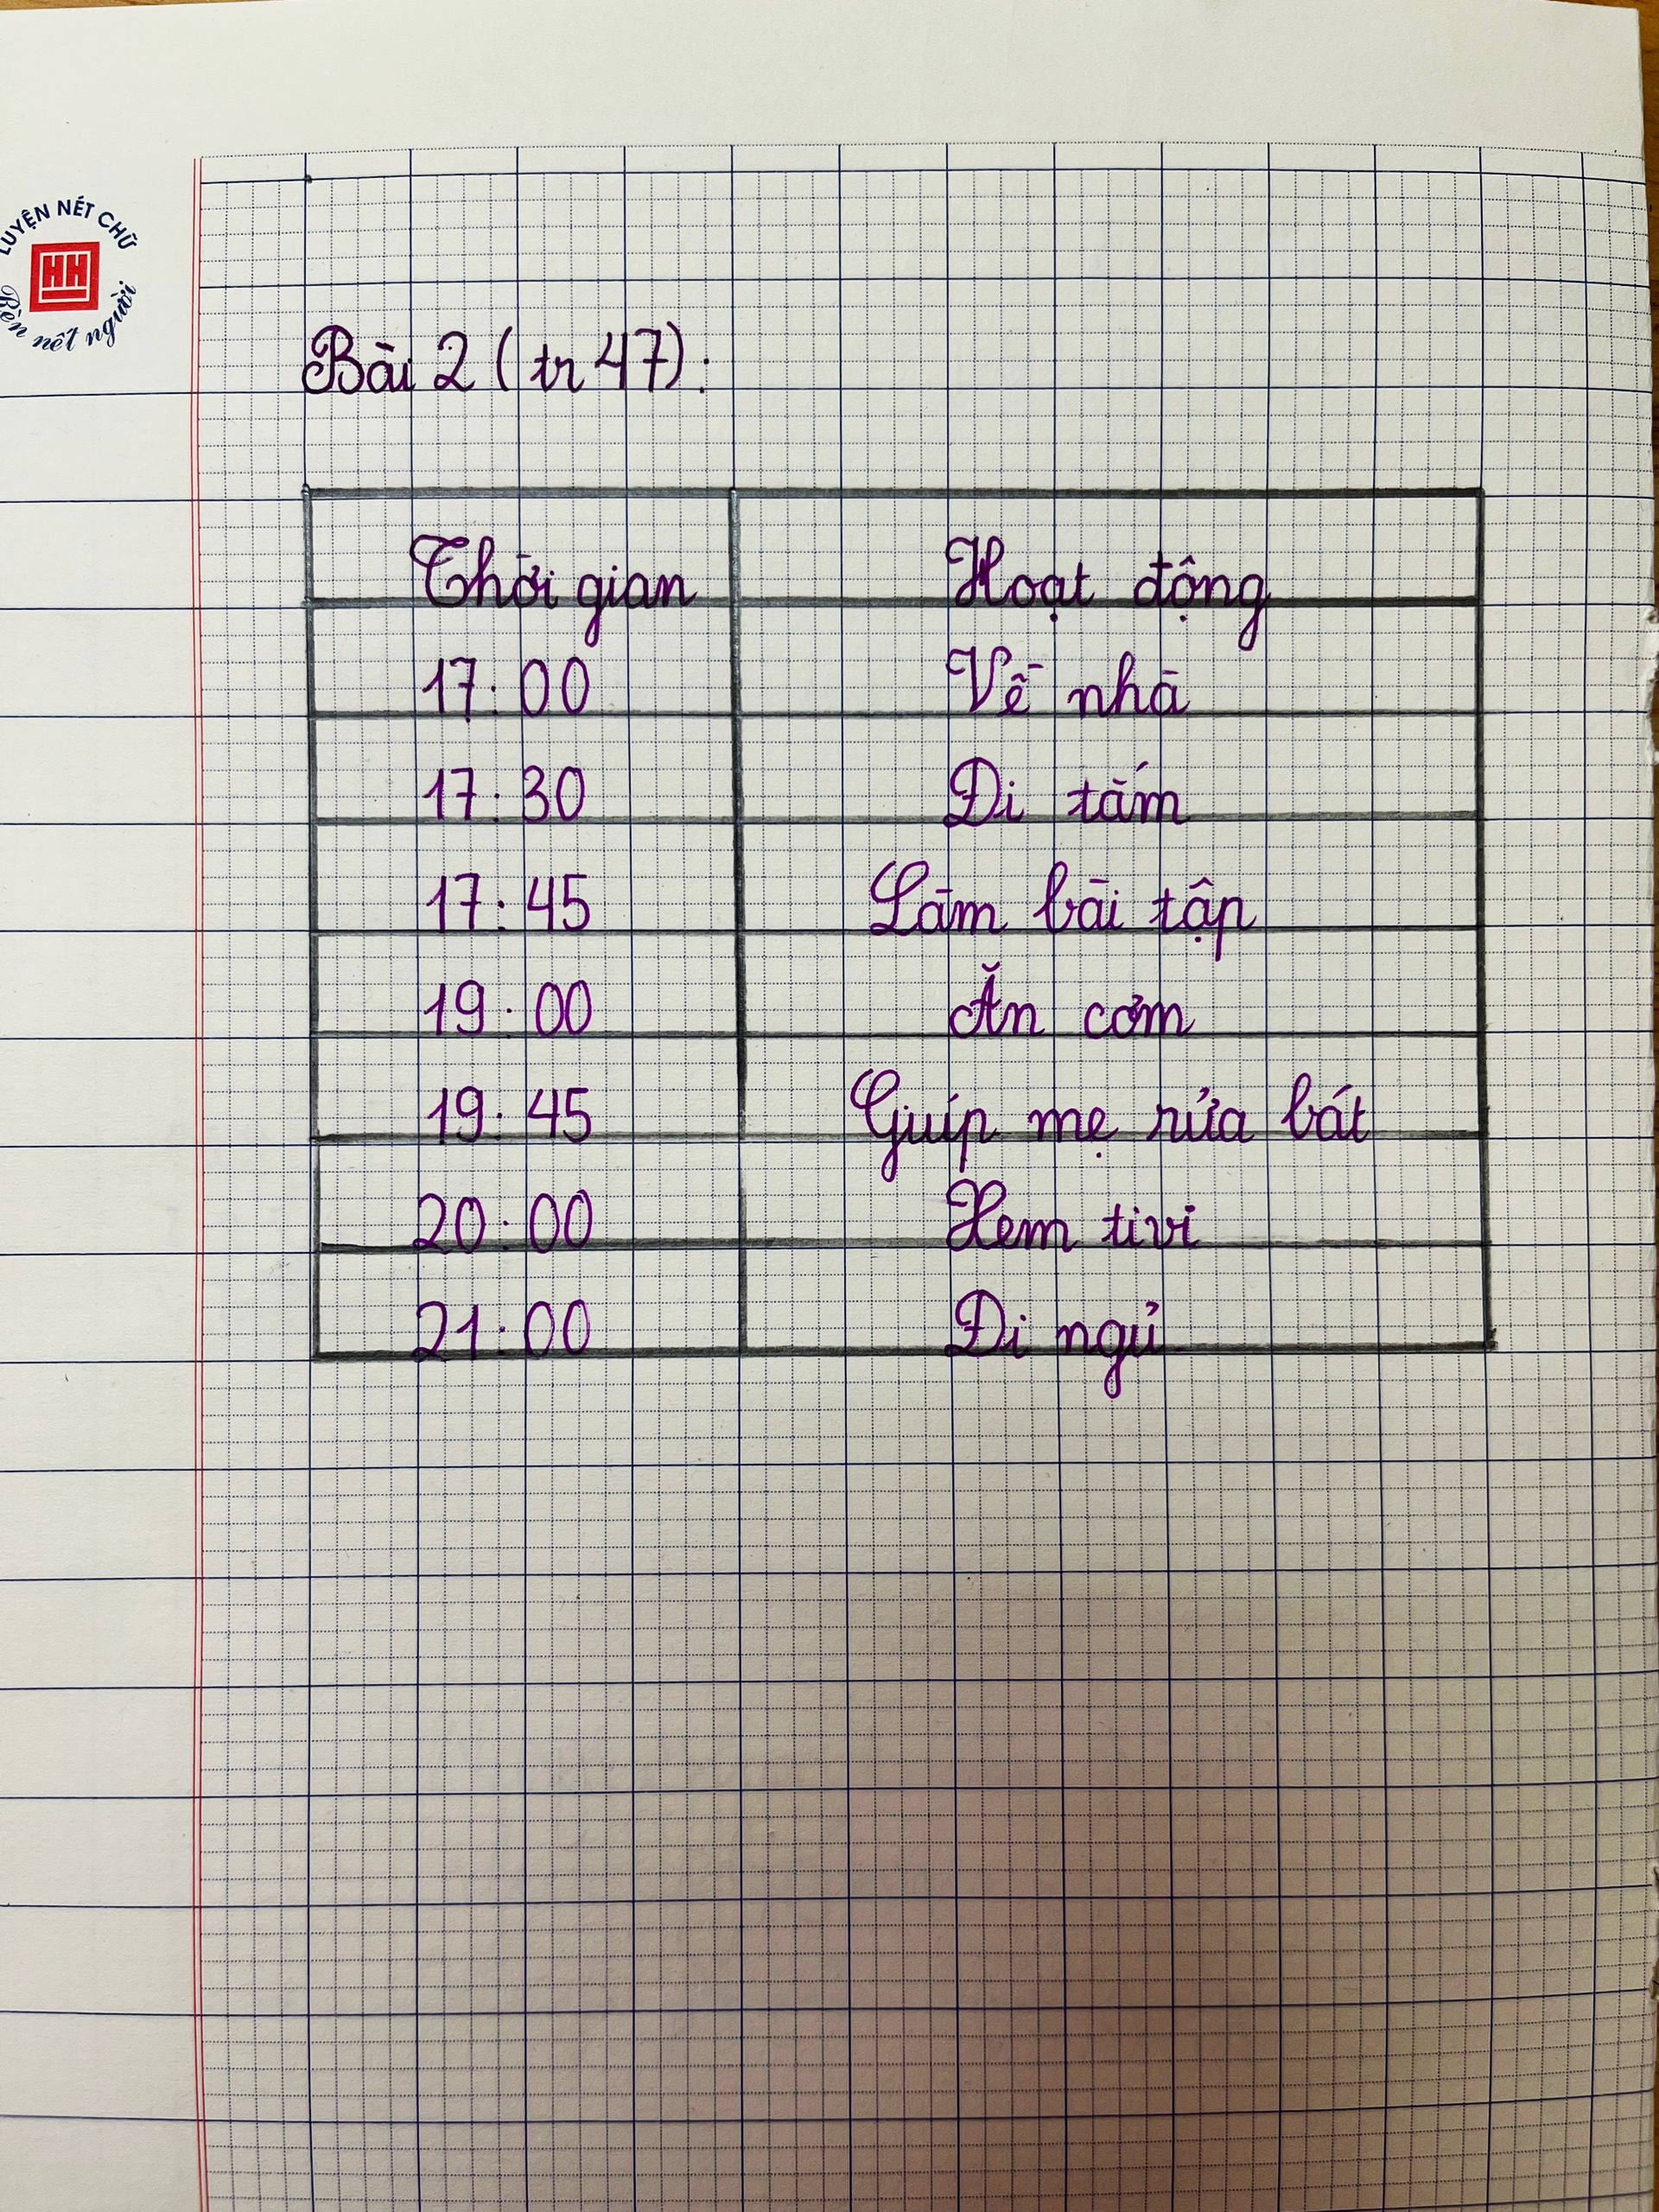 LUYỆN NÉT CHỮ
HH
Rèn nết người
Bài 2 (tr 47):
Thời gian Hoạt động
17:00 Về nhà
17:30 Đi tắm
17:45 Làm bài tập
19:00 Ăn cơm
19:45 Giúp mẹ rửa bát
20:00 Xem tivi
21:00 Đi ngủ